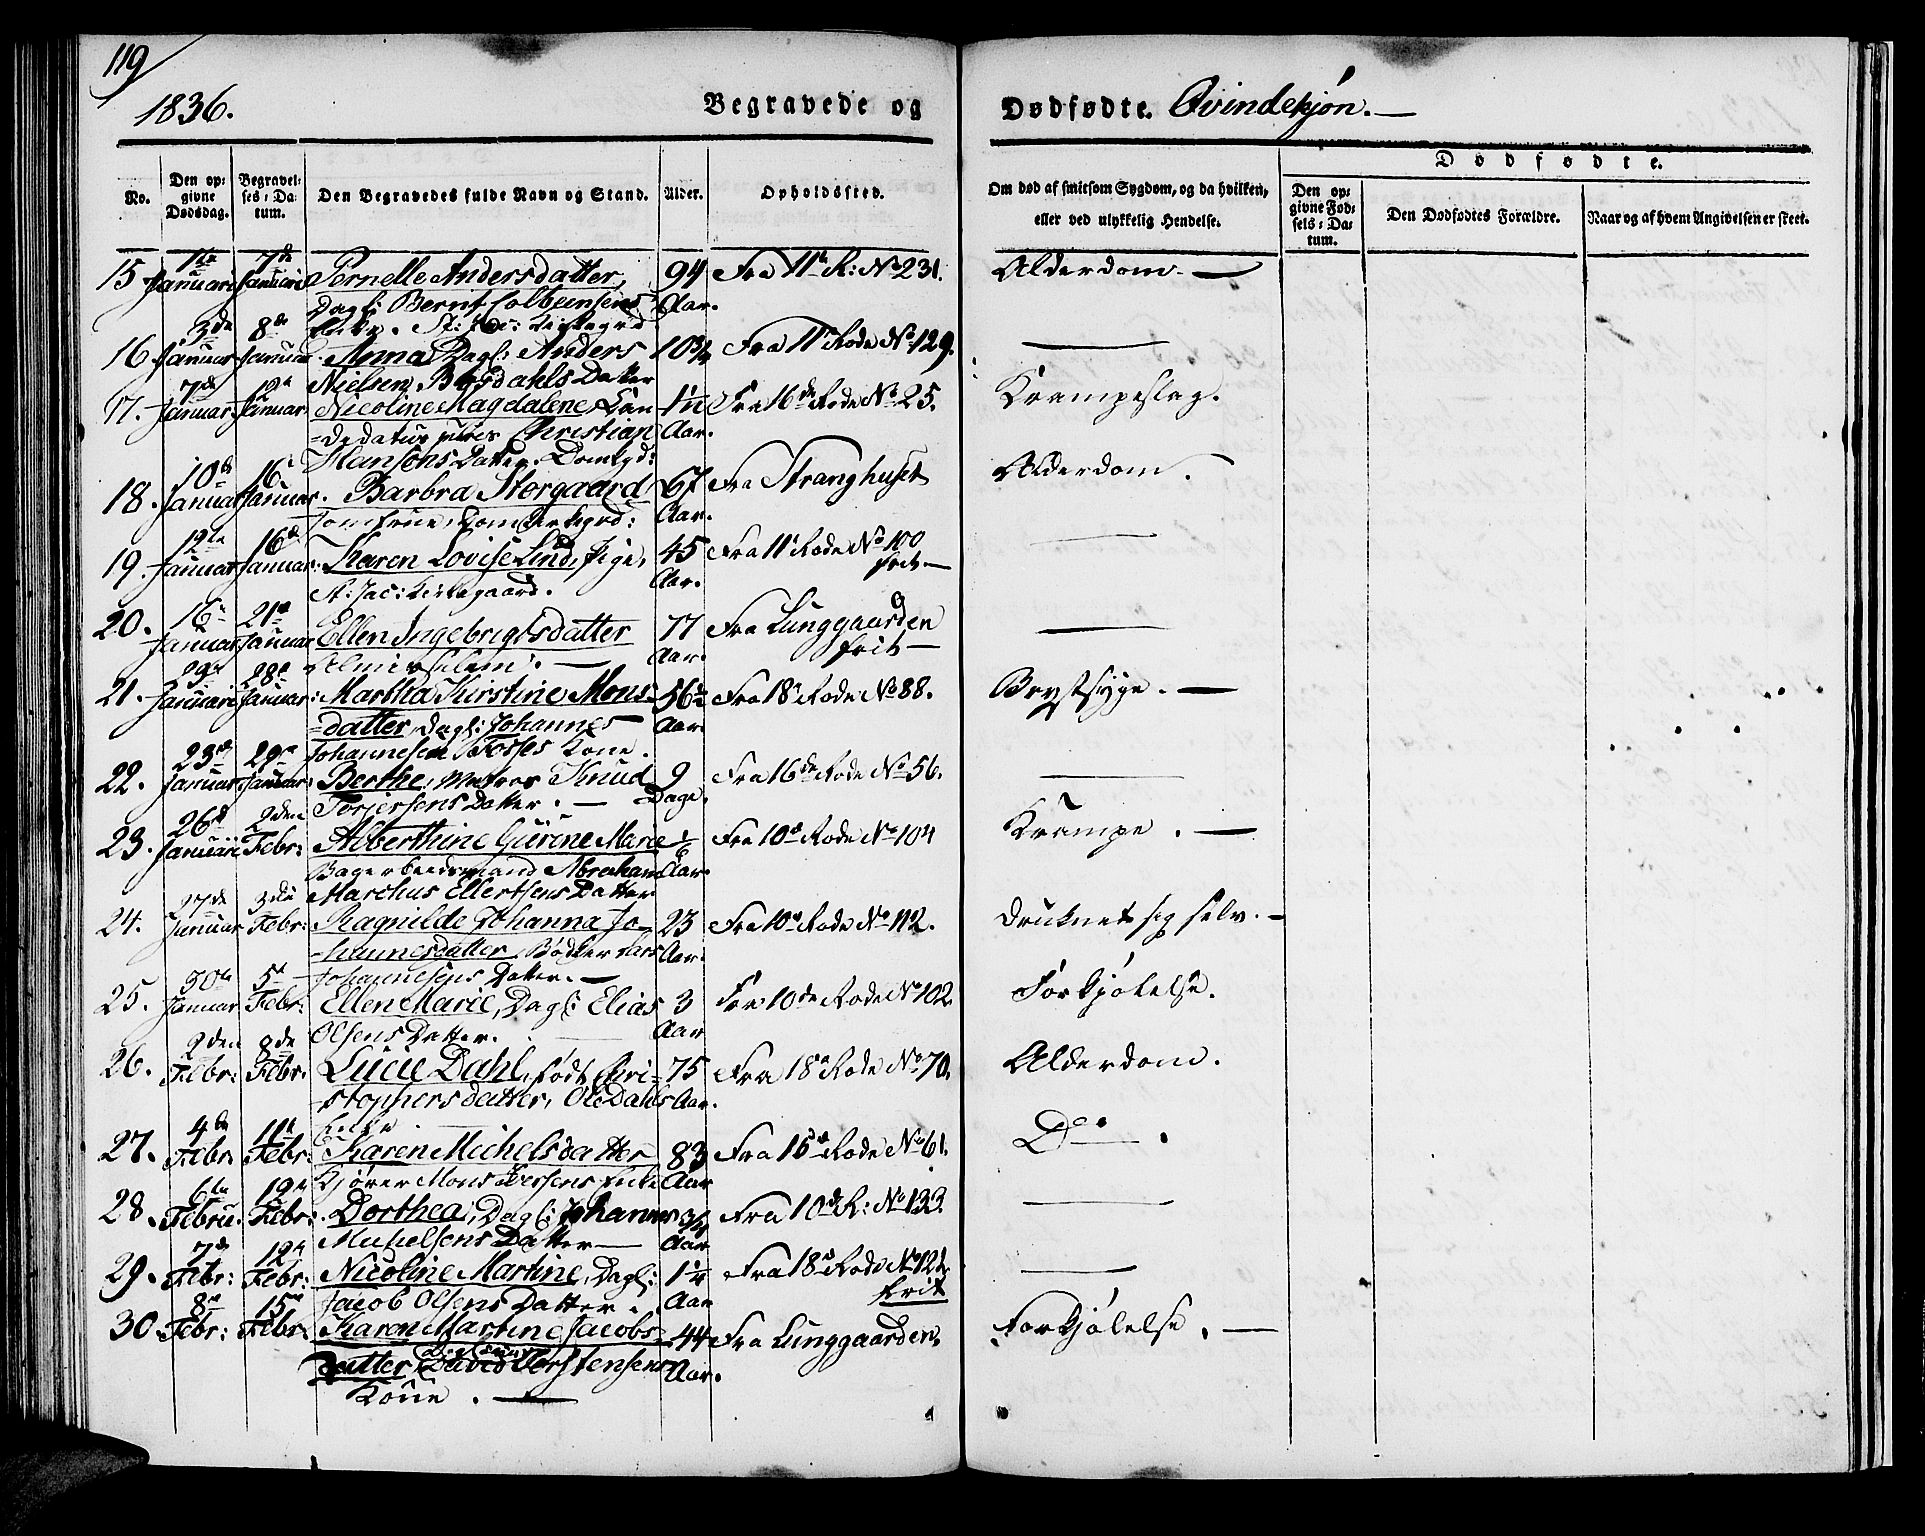 119
1836.
Begravede og
Dødfødte. Qvindekjøn.
No.
Den op=
givne
Dødsdag.
Begravel=
ses=Da=
tum.
Den Begravedes fulde Navn og Stand.
Alder.
Opholdssted.
Om død af smitsom Sygdom, og da hvilken,
eller ved ulykkelig Hendelse.
Dødfødte.
Den op=
givne Fød=
sels=Da=
tum.
Den Dødfødtes Forældre.
Naar og af hvem Angivelsen er skeet.
15 1te Januari 7de Januari Pernelle Andersdatter, 94 Aar. Fra 11te R: No 231. Alderdom.
Dagl: Bernt Colbeensens
Enke. St: Jac: Kirkegrd
16 3de Januar 8de Januar Anna, Dagl: Anders 10 3/4 Fra 11te Rode No 129.
Nielsen Datter
17. 7de Januar 12te Januar. Nicoline Magdalene, Aar. Fra 16de Rode No 25. Krampeslag.
Christian
Hansens Datter. Domkgd:
18. 10de Januar 16de Januar. Barbra Storgaard 67 Aar. Fra Stranghuset Alderdom.
Jomfrue, Domkirkegrd:
19. 12te Januar 16de Januar. Karen Lovise Lind, Pige, 45 Aar. Fra 11te Rode No 100 frit
St: Jac: Kirkegaard.
20. 16de Januar 21de Januar Ellen Ingebrigtsdatter 77 Aar. Fra Lunggaarden frit
Almislem.
21. Januari 28de Januar. Martha Kirstine Mons= 56 1/2 Aar. Fra 18de Rode No 88. Brystsyge.
=datter, Dagl: Johannes
Johannesen Fosses Kone.
22. 23de Januar 29de Januar. Berthe, Knud 9 Dage. Fra 16de Rode No 56.
Torjersens Datter.
23. 26de Januari 2den Febr: Alberthine Gurine Marie 1/6 Aar. Fra 10de Rode No 104 Krampe.
Abraham
Marchus Ellertsens Datter
24. 27de Januar 3die Febr: Ragnilde Johanna Jo= 23 Aar. Fra 10de Rode No 112. Druknet sig selv.
=hannesdatter, Bødker Lars
Johannesens Datter.
25. 30te Januar 5te Febr: Ellen Marie, Dagl: Elias 3 Aar Fra 10de Rode No 102. Forkjølelse.
Olsens Datter.
26. 2den Febr: 8de Febr. Lucie Dahl, født Chri= 75 Aar. Fra 18de Rode No 70. Alderdom.
=stophersdatter, Ole Dahls
Enke
27. 4de Febr. 11te Febr. Karen Michelsdatter 83 Aar Fra 15de Rode No 61. Do.
Kjører Mons Iversens Enke
28. 6te Febru. 12te Febr: Dorthea, Dagl: Johannes 3/4 Aar Fra 10de R: No 133.
Michelsens Datter
29. 7de Febr: 12te Febr: Nicoline Martine, Dagl: 1 1/4 Aar Fra 18de Rode No 121. frit
Jacob Olsens Datter.
30. 8de Febr: 15de Febr. Karen Martine Jacobs= 44 Aar. Fra Lunggaarden. Forkjølelse.
datter, David Torstensens
Kone.